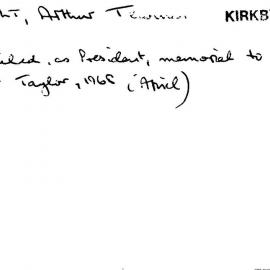 HT, Arthur T KIRKB
iled, as President, memorial to
Taylor, 1968 (April)